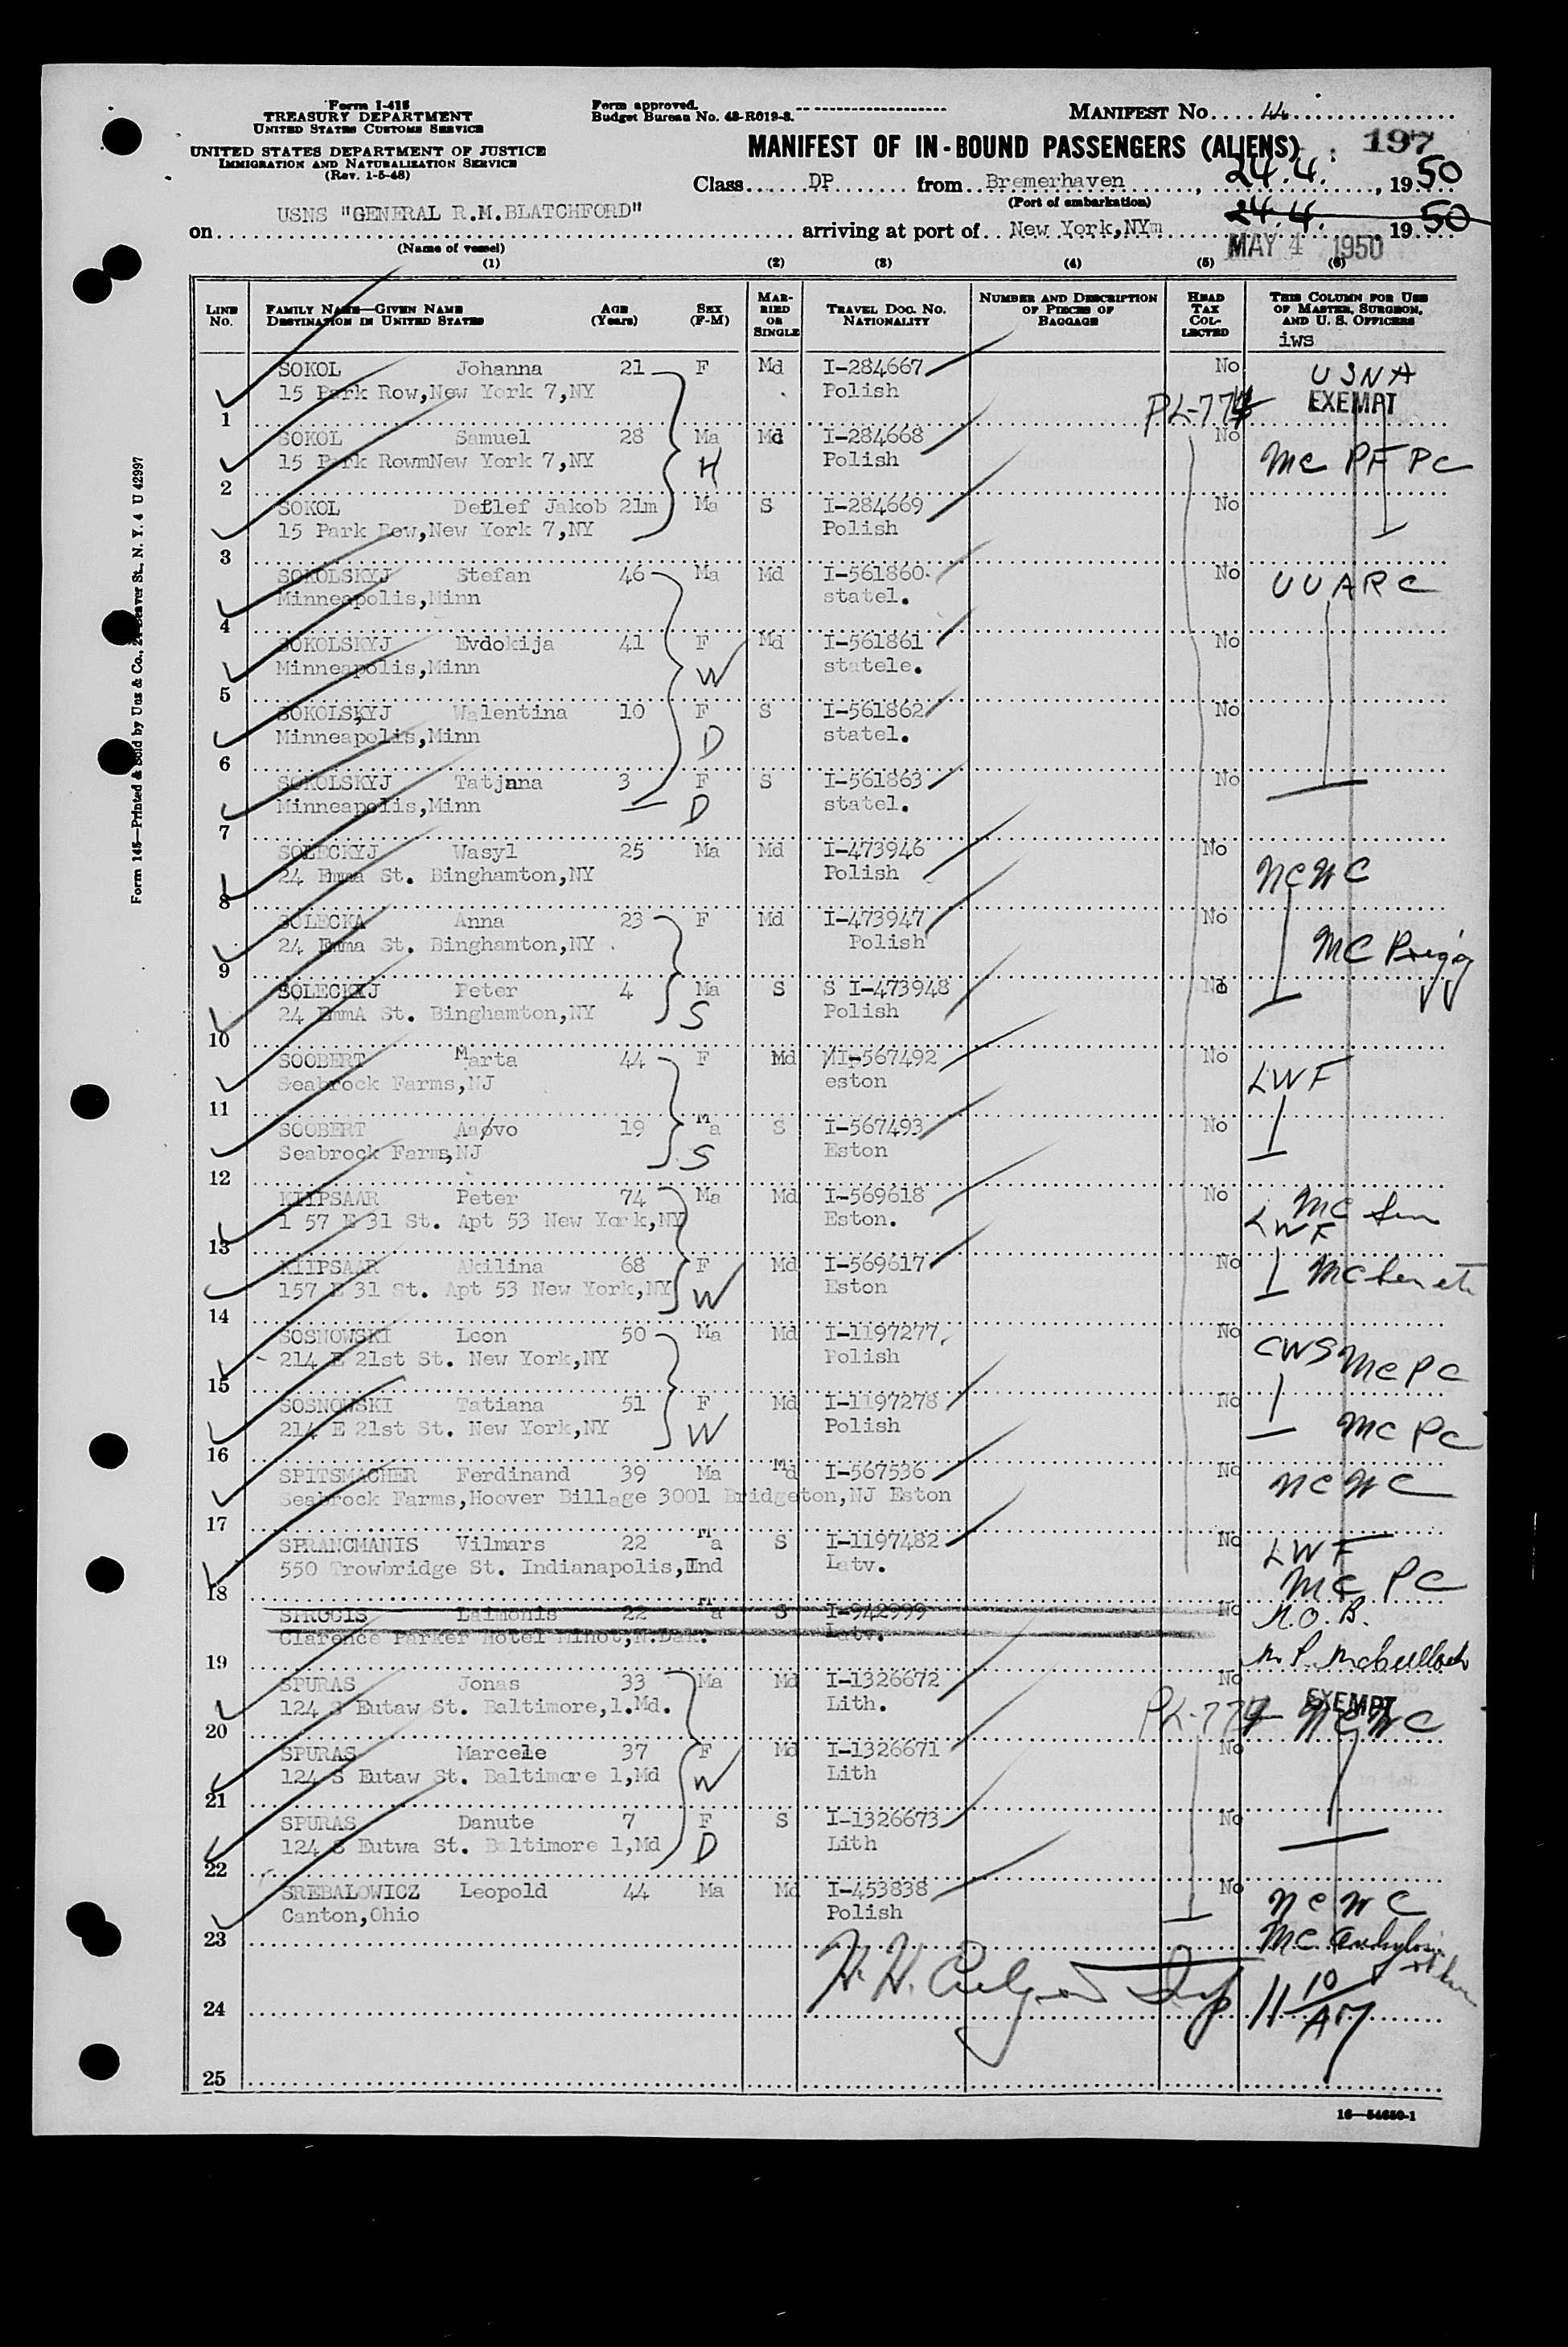 Form I-418
TREASURY DEPARTMENT
UNITED STATES CUSTOMS SERVICE
UNITED STATES DEPARTMENT OF JUSTICE
IMMIGRATION AND NATURALIZATION SERVICE
(Rev. 1-5-48)
Form approved.
Budget Bureau No. 43-R019-3.
MANIFEST No. 44
MANIFEST OF IN-BOUND PASSENGERS (ALIENS) 197
Class DP from Bremerhaven, 24.4., 1950
(Port of embarkation)
on USNS "GENERAL R.M.BLATCHFORD" arriving at port of New York,NYm 24.4. 1950
(Name of vessel)
MAY 4 1950
(1) (2) (3) (4) (5) (6)
LINE No. FAMILY NAME—GIVEN NAME DESTINATION IN UNITED STATES AGE (Years) SEX (F-M) MARRIED OR SINGLE TRAVEL DOC. NO. NATIONALITY NUMBER AND DESCRIPTION OF PIECES OF BAGGAGE HEAD TAX COLLECTED THIS COLUMN FOR USE OF MASTER, SURGEON, AND U. S. OFFICERS
iws
SOKOL Johanna 21 F Md I-284667 No USNA
15 Park Row,New York 7,NY Polish PL-774 EXEMPT
1
SOKOL Samuel 28 Ma Md I-284668 No
15 Park RowmNew York 7,NY H Polish MC PF PC
2
SOKOL Detlef Jakob 21m Ma S I-284669 No
15 Park Row,New York 7,NY Polish
3
SOKOLSKYJ Stefan 46 Ma Md I-561860 No UUARC
Minneapolis,Minn statel.
4
SOKOLSKYJ Evdokija 41 F Md I-561861 No
Minneapolis,Minn W statele.
5
SOKOLSKYJ Walentina 10 F S I-561862 No
Minneapolis,Minn D statel.
6
SOKOLSKYJ Tatjana 3 F S I-561863 No
Minneapolis,Minn D statel.
7
SOLECKYJ Wasyl 25 Ma Md I-473946 No
24 Emma St. Binghamton,NY Polish NCWC
8
SOLECKA Anna 23 F Md I-473947 No
24 Emma St. Binghamton,NY Polish MC
9
SOLECKYJ Peter 4 Ma S S I-473948 No
24 EmmA St. Binghamton,NY S Polish
10
SOOBERT Marta 44 F Md I-567492 No
Seabrock Farms,NJ eston LWF
11
SOOBERT Aavo 19 Ma S I-567493 No
Seabrock Farms,NJ S Eston
12
KIIPSAAR Peter 74 Ma Md I-569618 No MC
1 57 E 31 St. Apt 53 New York,NY Eston. LWF
13
KIIPSAAR Akilina 68 F Md I-569617 No MC
157 E 31 St. Apt 53 New York,NY W Eston
14
SOSNOWSKI Leon 50 Ma Md I-1197277 No CWS MC PC
214 E 21st St. New York,NY Polish
15
SOSNOWSKI Tatiana 51 F Md I-1197278 No
214 E 21st St. New York,NY W Polish MC PC
16
SPITSMACHER Ferdinand 39 Ma Md I-567536 No NCWC
Seabrock Farms,Hoover Billage 3001 Bridgeton,NJ Eston
17
SPRANCMANIS Vilmars 22 Ma S I-1197482 No LWF
550 Trowbridge St. Indianapolis,Ind Latv. MC PC
18
SPROGIS Laimonis 22 Ma S I-942999 No N.O.B.
Clarence Parker Hotel Minot,N.Dak. Latv.
19
SPURAS Jonas 33 Ma Md I-1326672 No EXEMPT
124 S Eutaw St. Baltimore,1.Md. Lith. PL-774 NCWC
20
SPURAS Marcele 37 F Md I-1326671 No
124 S Eutaw St. Baltimore 1,Md W Lith
21
SPURAS Danute 7 F S I-1326673 No
124 S Eutwa St. Baltimore 1,Md D Lith
22
SREBALOWICZ Leopold 44 Ma Md I-453838 No NCWC
Canton,Ohio Polish
23 MC
24 11 10 AM
25
16—54650-1
Form 145—Printed & Sold by Unz & Co., 24 Beaver St., N. Y. 4 U 42997